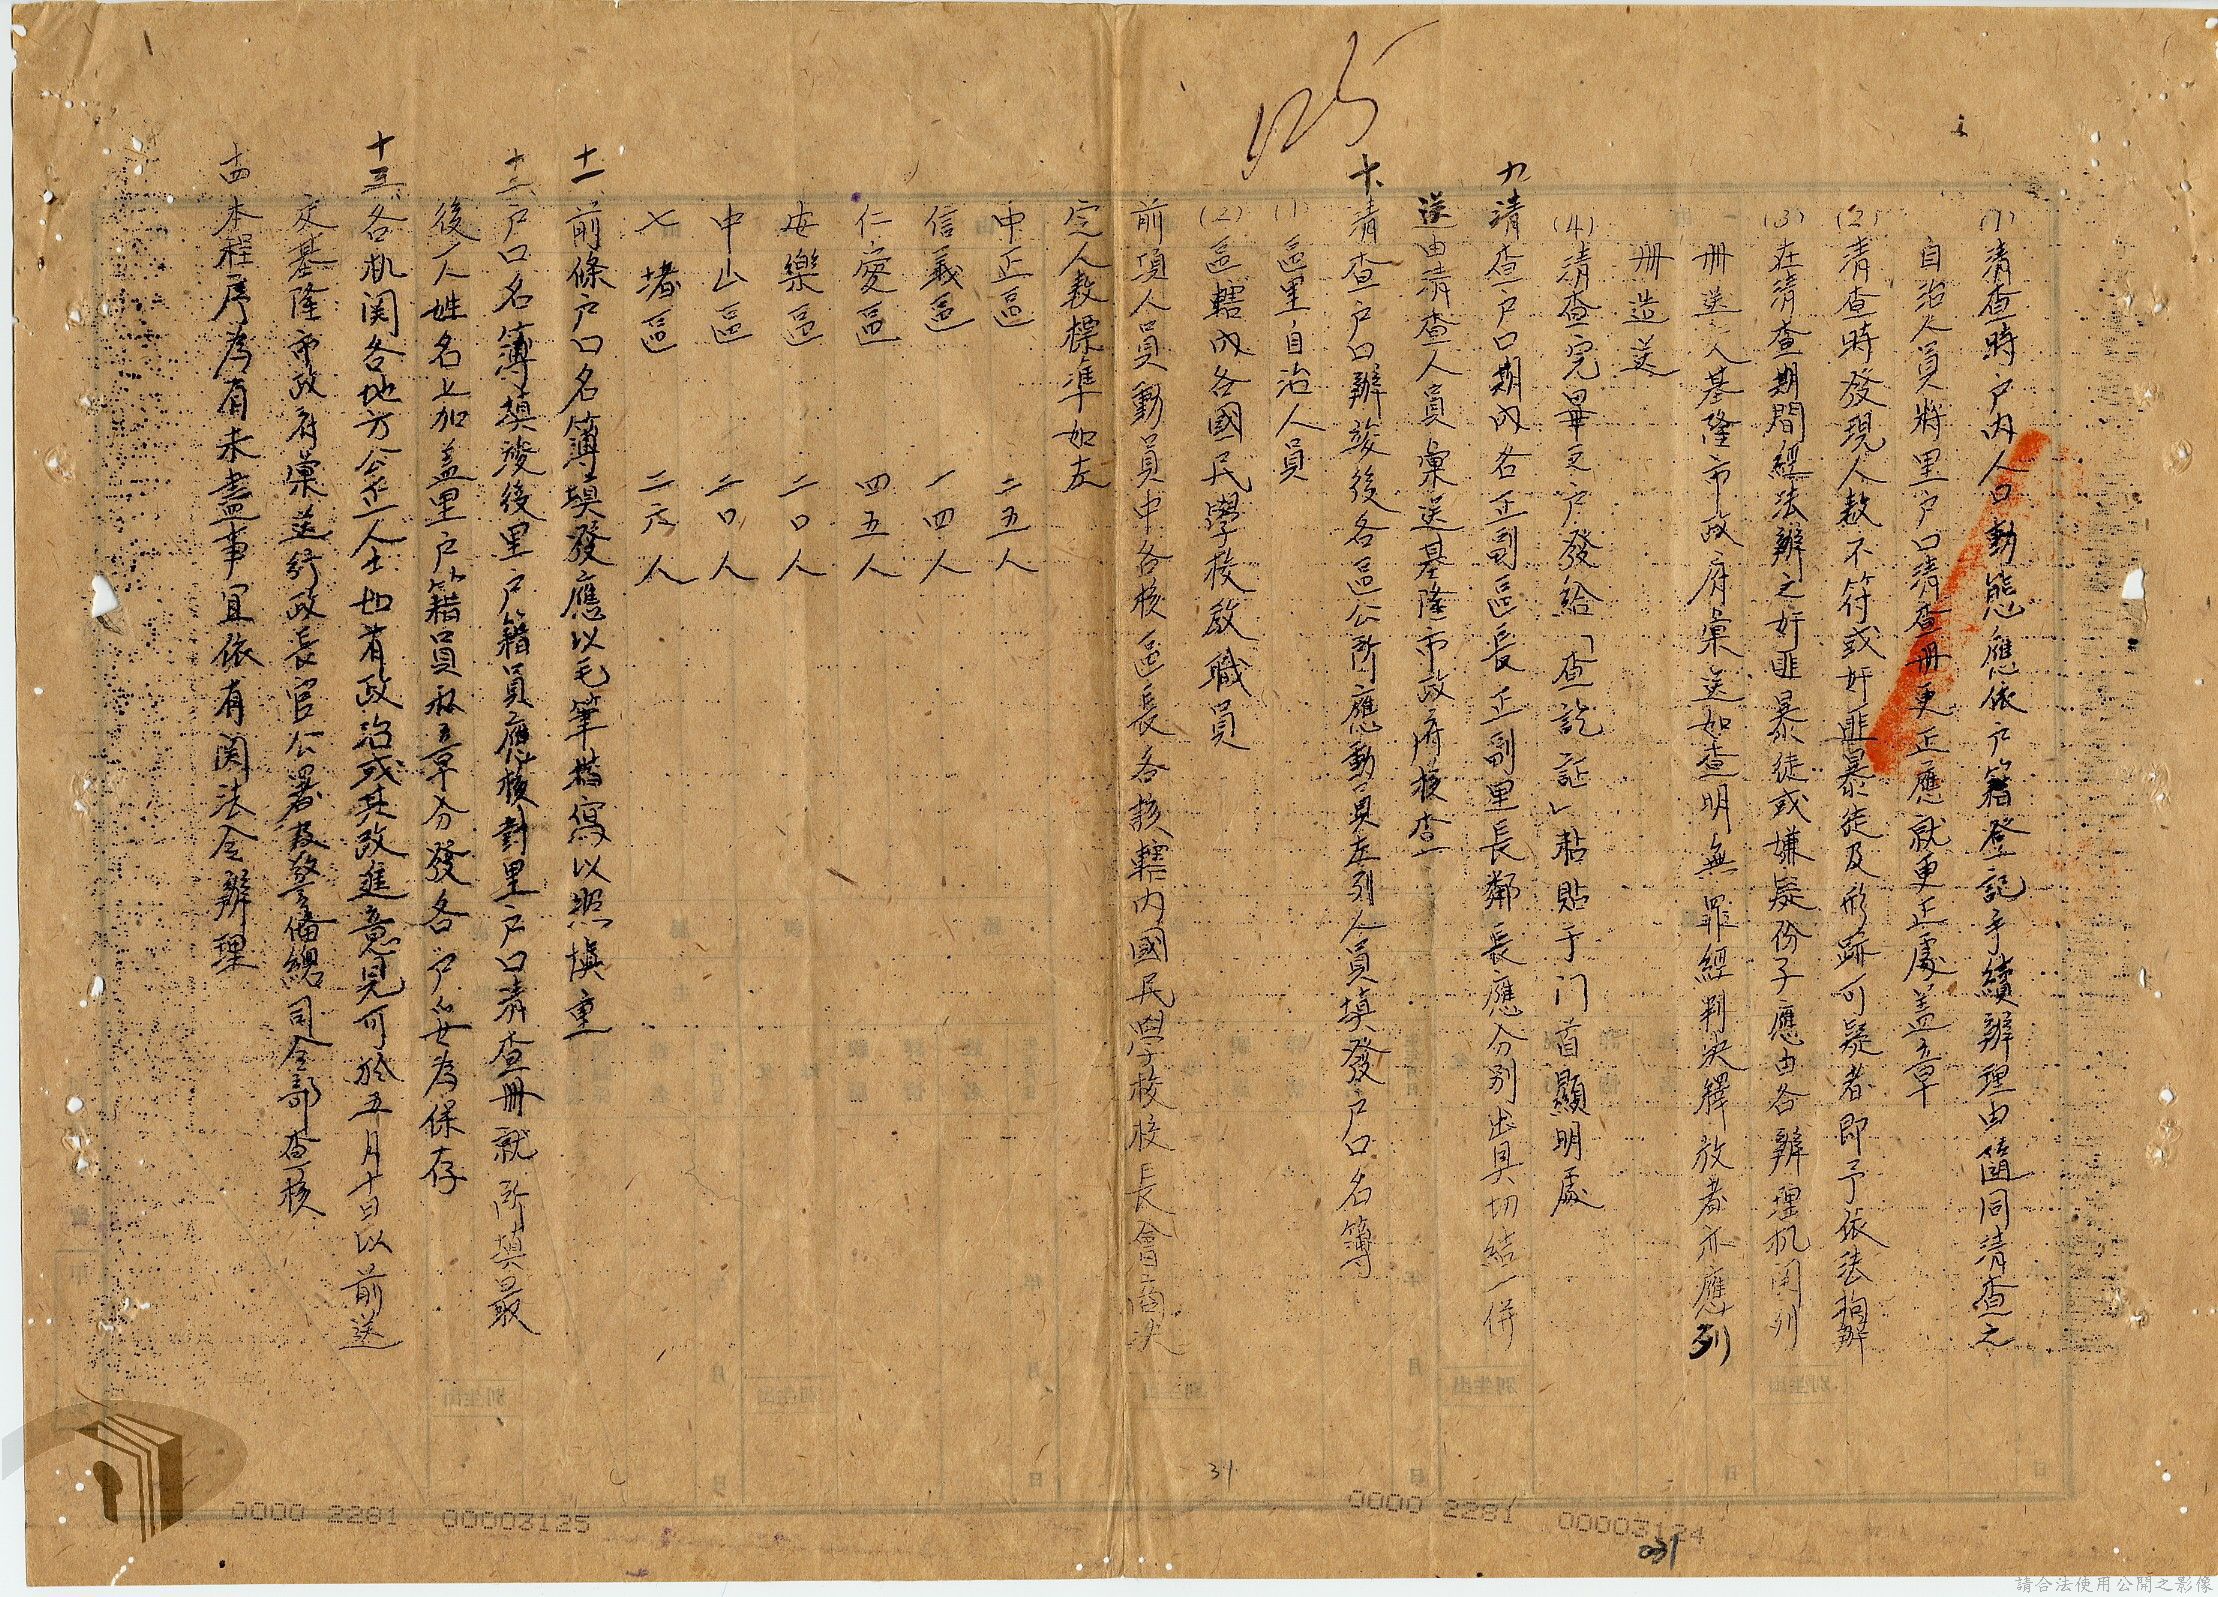 125
(1)清查時户内人口動態應依户籍登記手續辦理由隨同清查之
自治人員將里户口清查册更正應就更正處盖章
(2)清查時發現人数不符或奸匪暴徒及形跡可疑者即予依法拘辦
(3)在清查期間經法辦之奸匪暴徒或嫌疑份子應由各辦理机関列
册送入基隆市政府彙送如查明無罪經判决釋放者亦應列
册造送
(4)清查完畢之户發給「查訖証」粘貼于门首顯明處
九清查户口期内各正副區長正副里長鄰長應分别出具切結一併
送由清查人員彙送基隆市政府核查
十、清查户口辦竣後各區公所應動員左列人員填發户口名簿
(1)區里自治人員
(2)區轄内各國民學校教職員
前項人員動員中各核區長各該轄内國民學校校長會商决
定人数標準如左
中正區 二五人
信義區 一四人
仁愛區 四五人
安樂區 二〇人
中山區 二〇人
七堵區 二六人
十一、前條户口名簿填發應以毛筆楷寫以照慎重
十二、户口名簿填竣後里户籍員應核對里户口清查册就所填最
後一人姓名上加盖里户籍員私章分發各户妥為保存
十三、各机関各地方公正人士如有政治或其改進意見可於五月十日以前送
交基隆市政府彙送行政長官公署及警備總司令部查核
十四本程序為有未盡事宜依有関法令辦理
31
0000 2281 00003125
0000 2281 00003124
031
請合法使用公開之影像